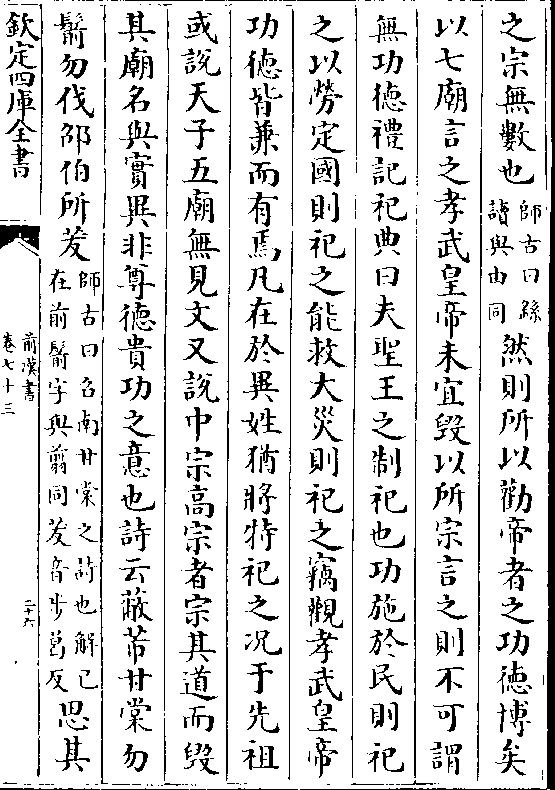 之宗無數也師古曰繇讀與由同然則所以勸帝者之功德博矣
以七廟言之孝武皇帝未宜毀以所宗言之則不可謂
無功德禮記祀典曰夫聖王之制祀也功施於民則祀
之以勞定國則祀之能救大災則祀之竊觀孝武皇帝
功德皆兼而有焉凡在於異姓猶將特祀之况于先祖
或說天子五廟無見文又說中宗高宗者宗其道而毀
其廟名與實異非尊德貴功之意也詩云蔽芾甘棠勿
鬋勿伐邵伯所茇師古曰召南甘棠之詩也解已在前鬋字與翦同茇音步葛反思其
欽定四庫全書
前漢書
卷七十三
二十六